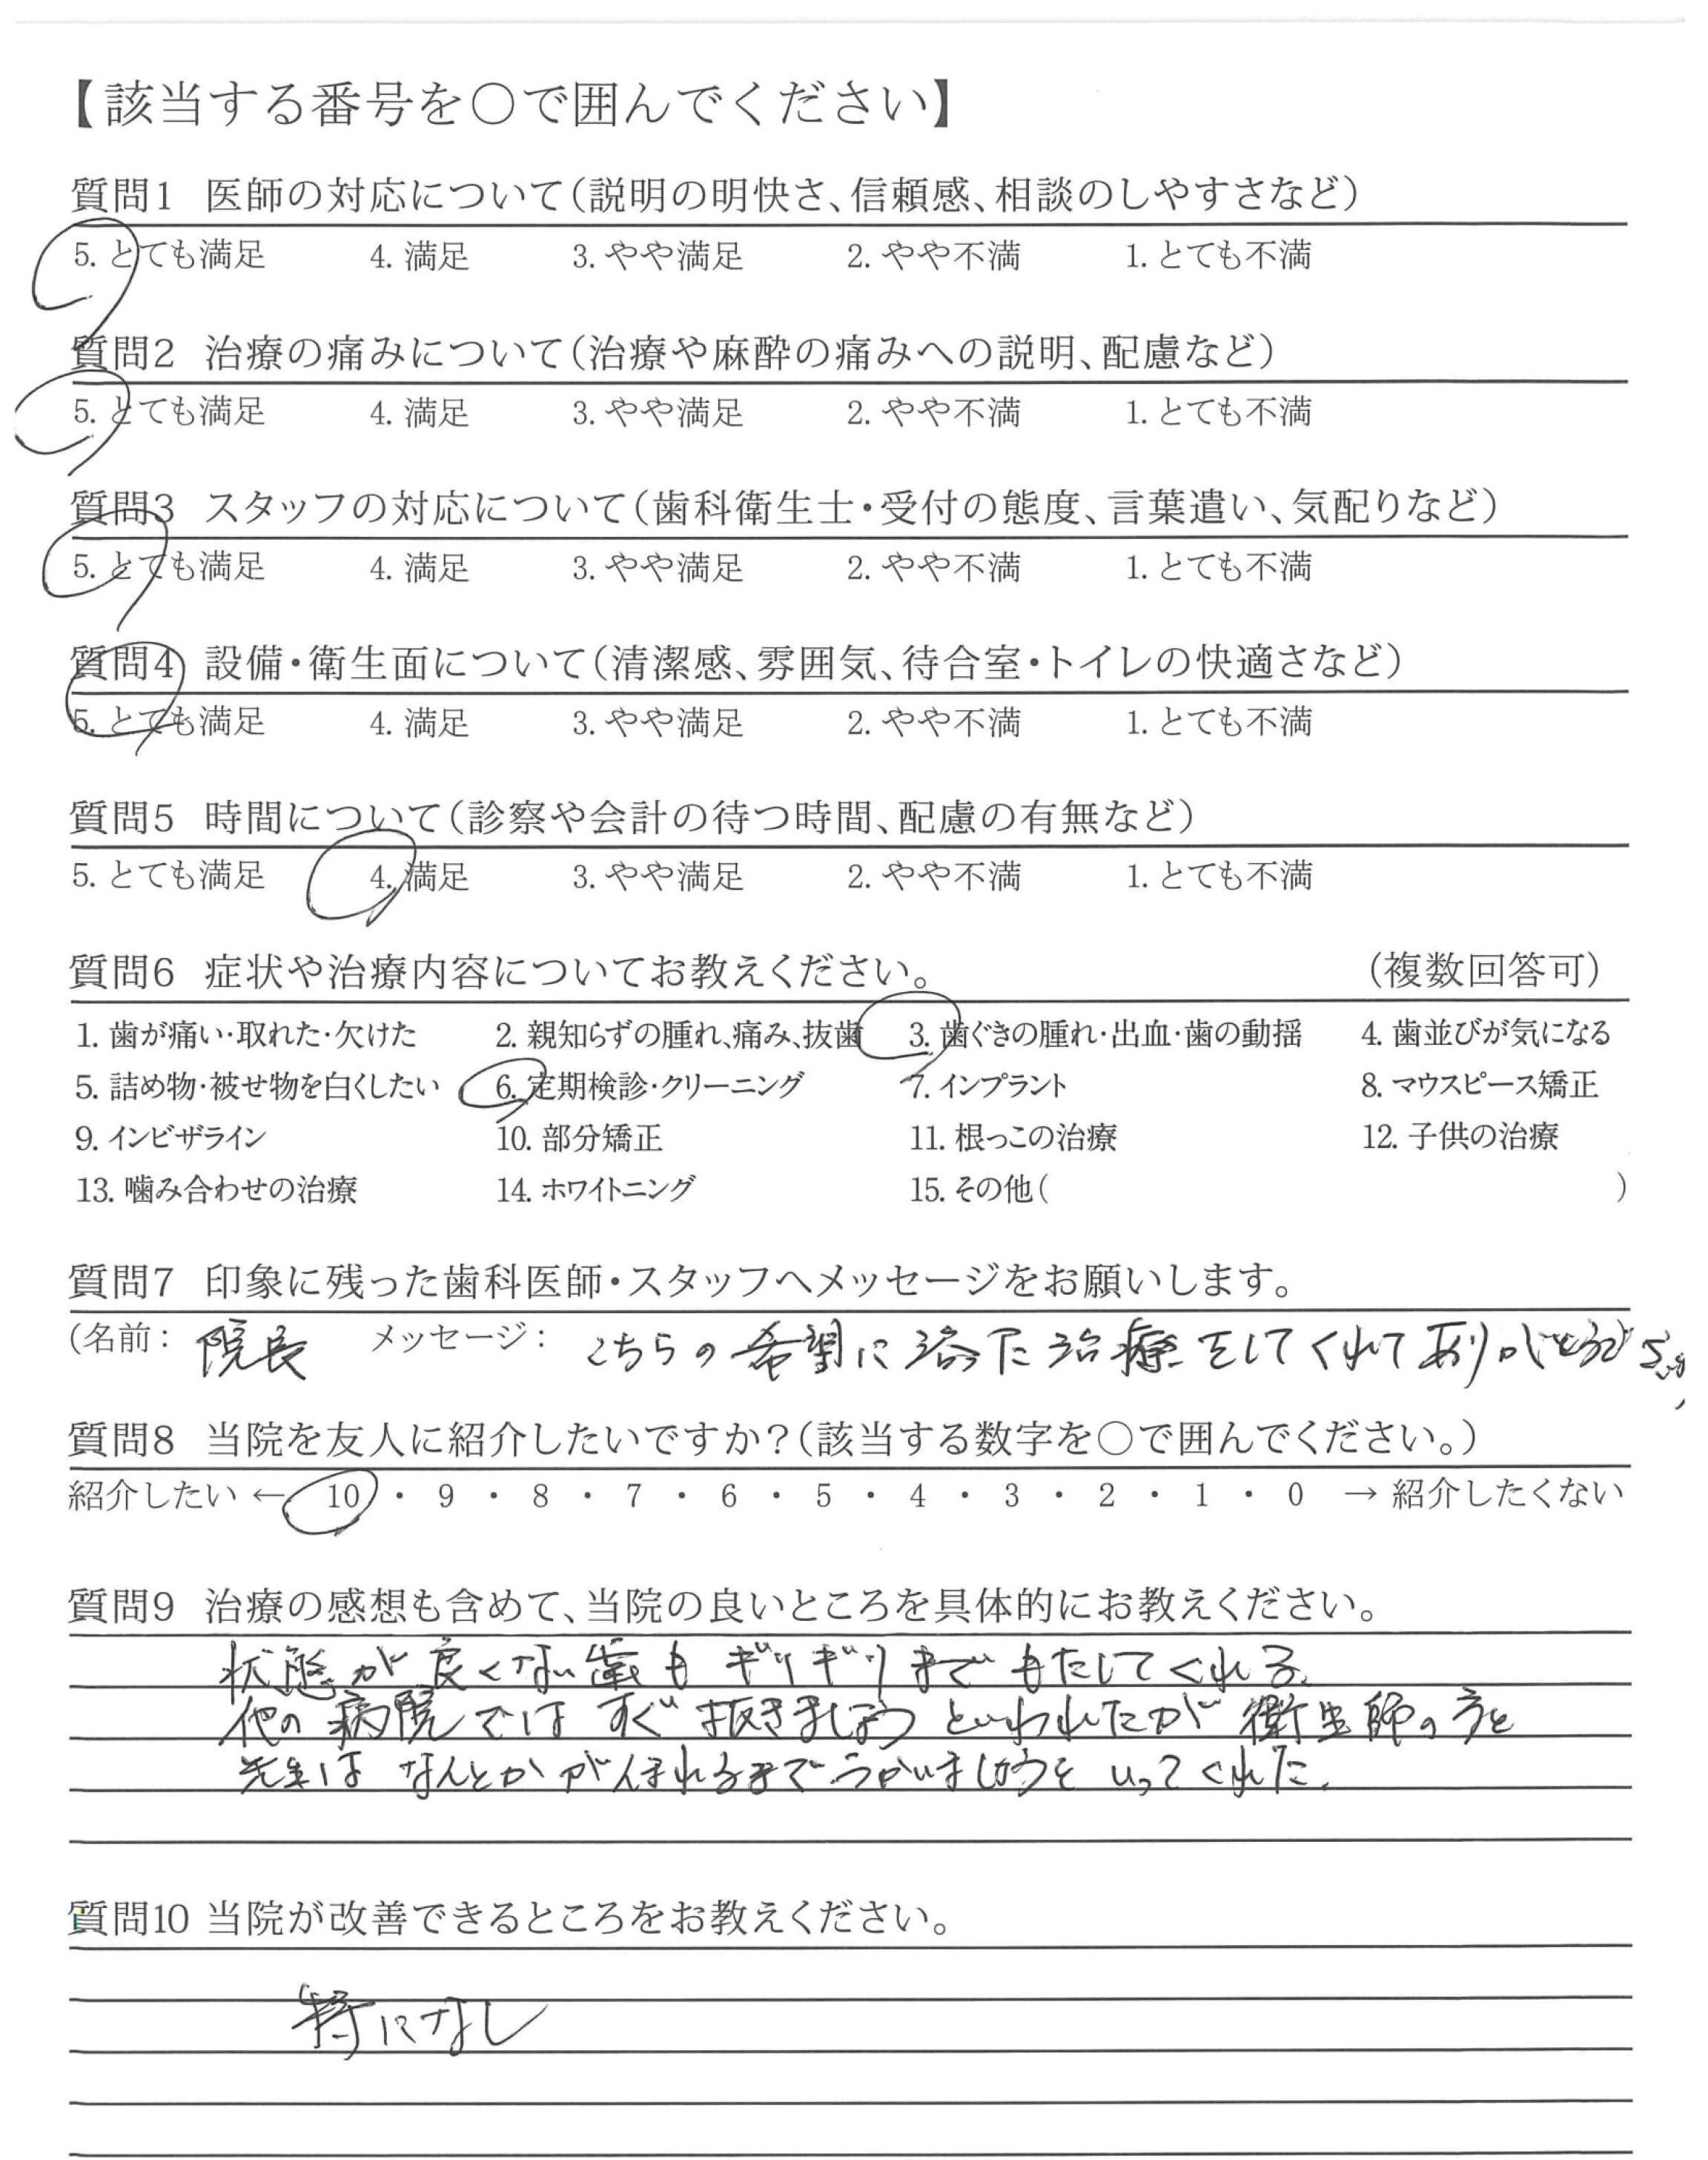 【該当する番号を○で囲んでください】
質問1 医師の対応について(説明の明快さ、信頼感、相談のしやすさなど)
5. とても満足 4. 満足 3. やや満足 2. やや不満 1. とても不満
質問2 治療の痛みについて(治療や麻酔の痛みへの説明、配慮など)
5. とても満足 4. 満足 3. やや満足 2. やや不満 1. とても不満
質問3 スタッフの対応について(歯科衛生士・受付の態度、言葉遣い、気配りなど)
5. とても満足 4. 満足 3. やや満足 2. やや不満 1. とても不満
質問4 設備・衛生面について(清潔感、雰囲気、待合室・トイレの快適さなど)
5. とても満足 4. 満足 3. やや満足 2. やや不満 1. とても不満
質問5 時間について(診察や会計の待つ時間、配慮の有無など)
5. とても満足 4. 満足 3. やや満足 2. やや不満 1. とても不満
質問6 症状や治療内容についてお教えください。 (複数回答可)
1. 歯が痛い・取れた・欠けた 2. 親知らずの腫れ、痛み、抜歯 3. 歯ぐきの腫れ・出血・歯の動揺 4. 歯並びが気になる
5. 詰め物・被せ物を白くしたい 6. 定期検診・クリーニング 7. インプラント 8. マウスピース矯正
9. インビザライン 10. 部分矯正 11. 根っこの治療 12. 子供の治療
13. 噛み合わせの治療 14. ホワイトニング 15. その他( )
質問7 印象に残った歯科医師・スタッフへメッセージをお願いします。
(名前: 院長 メッセージ: こちらの希望に添った治療をしてくれてありがとうござ
質問8 当院を友人に紹介したいですか?(該当する数字を○で囲んでください。)
紹介したい ← 10 ・ 9 ・ 8 ・ 7 ・ 6 ・ 5 ・ 4 ・ 3 ・ 2 ・ 1 ・ 0 → 紹介したくない
質問9 治療の感想も含めて、当院の良いところを具体的にお教えください。
状態が良くない歯もギリギリまでもたしてくれる。
他の病院ではすぐ抜きましょうといわれたが衛生師の方と
先生はなんとかがんばれるまでつかいましょうといってくれた。
質問10 当院が改善できるところをお教えください。
特になし